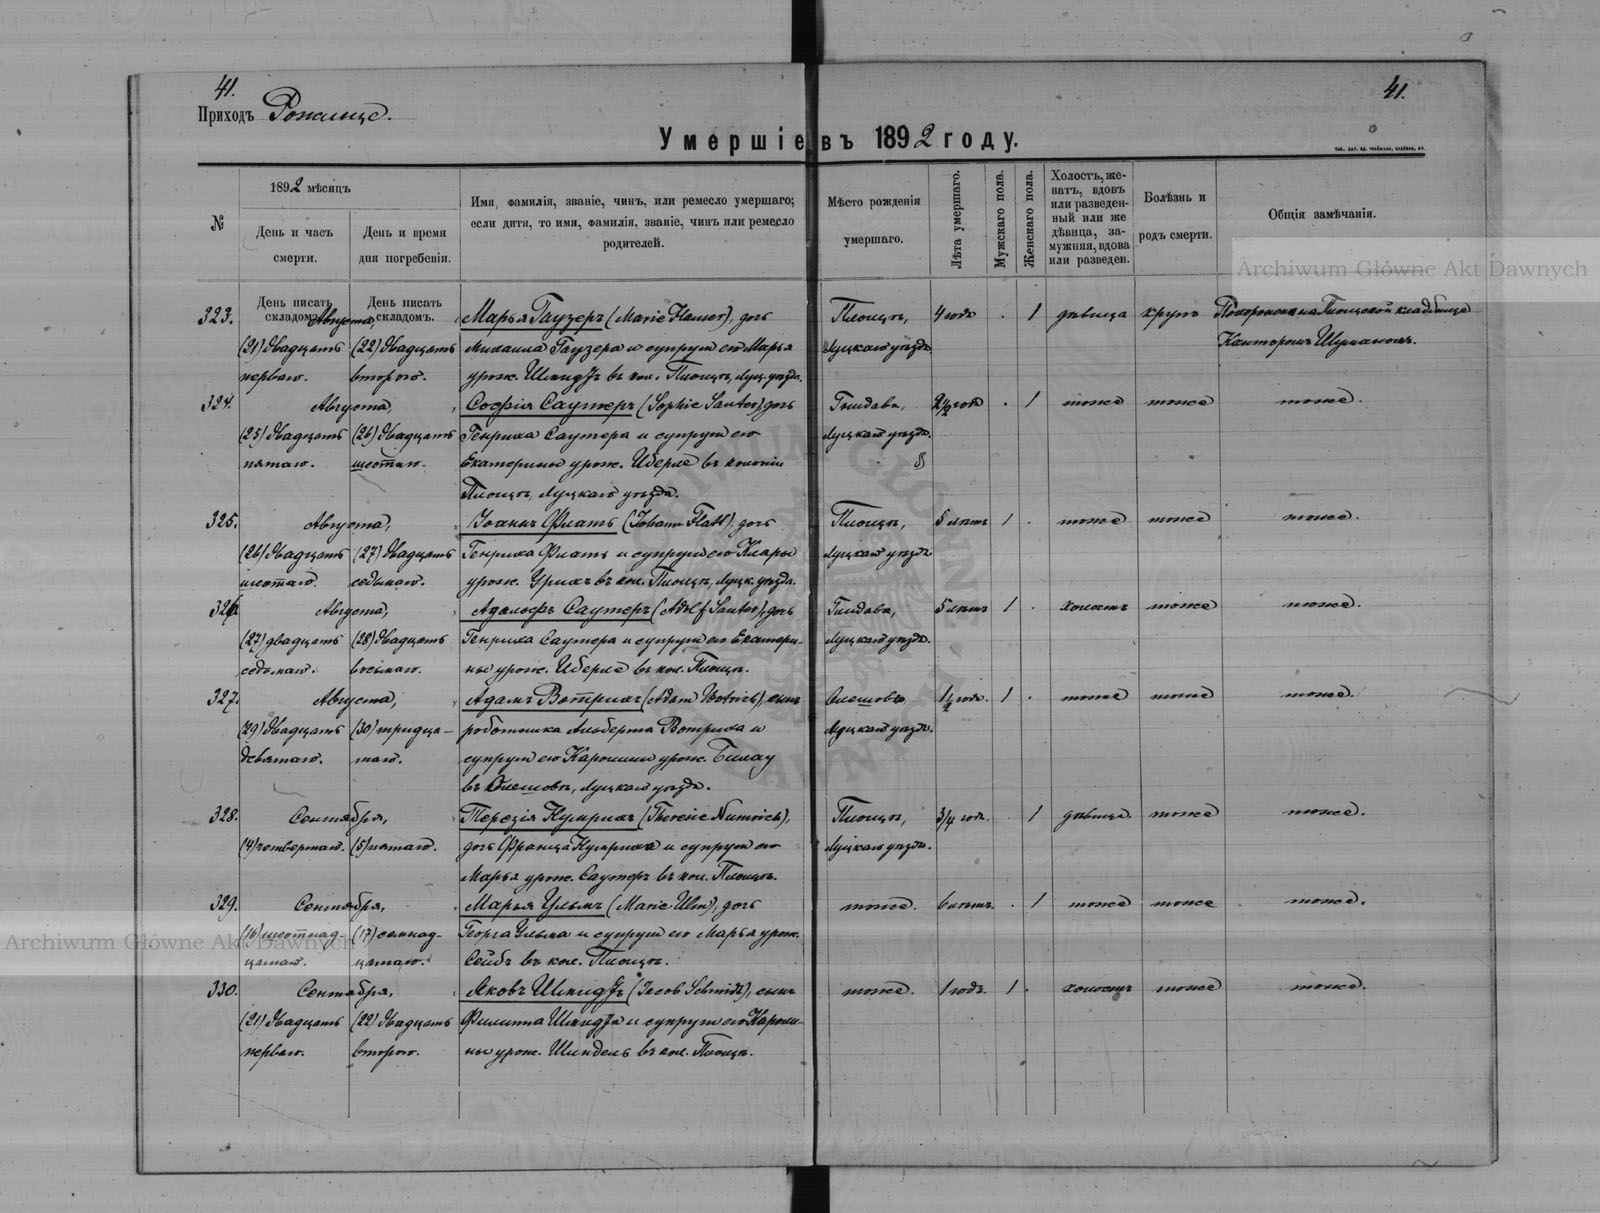 41.
41.
Приходъ Рожище.
Умершіе въ 1892 году.
№
1892 мѣсяцъ
День и часъ смерти.
День и время дня погребенія.
Имя, фамилія, званіе, чинъ, или ремесло умершаго;
если дитя, то имя, фамилія, званіе, чинъ или ремесло
родителей.
Мѣсто рожденія
умершаго.
Лѣта умершаго.
Мужскаго пола.
Женскаго пола.
Холостъ, же-
натъ, вдовъ
или разведен-
ный или же
дѣвица, за-
мужняя, вдова
или разведен.
Болѣзнь и
родъ смерти.
Общія замѣчанія.
Archiwum Główne Akt Dawnych
День писать складомъ.
День писать складомъ.
323. Августа, Марья Гаузеръ (Marie Hauser), дочь
(21) двадцать (22) двадцать Михаила Гаузера и супруги его Марья
перваго. втораго. урож. Шмидтъ въ кол. Пльощъ, Луц. уѣзда.
Луцкаго уѣзда 4 года . 1 дѣвица крупъ
324. Августа, Софія Саутеръ (Sophie Sauter), дочь
(25) двадцать (26) двадцать Генриха Саутера и супруги его
пятаго. шестаго. Екатерины урож. Иберле въ колоніи
Луцкаго уѣзда.
Гнидава, 2½ года . 1 тоже тоже тоже.
Луцкаго уѣзда.
325. Августа, Іоаннъ Флатъ (Johann Flatt), дочь
(26) двадцать (27) двадцать Генриха Флата и супруги его Клары
шестаго. седьмаго. урож. Ульрихъ въ кол.
Луцкаго уѣзда 5 лѣтъ 1 . тоже тоже тоже.
326. Августа, Адольфъ Саутеръ (Adolf Sauter), дочь
(27) двадцать (28) двадцать Генриха Саутера и супруги его Екатери-
седьмаго. восьмаго. ны урож. Иберле въ кол.
Гнидава, 5 лѣтъ 1 . холостъ тоже тоже.
Луцкаго уѣзда.
327. Августа, Адамъ Вотрихъ (Adam Wotrich), сынъ
(29) двадцать (30) тридца- работника Альберта Вотриха и
девятаго. таго. супруги его Каролины урож. Билау
въ Олешовѣ, Луцкаго уѣзда.
Олешовъ 1½ года. 1 . тоже тоже тоже.
Луцкаго уѣзда.
328. Сентября, Терезія Нумрихъ (Theresie Numrich),
(4) четвертаго. (5) пятаго. дочь Франца Нумриха и супруги его
Марья урож. Саутеръ въ кол.
3/4 года. . 1 дѣвица тоже тоже.
Луцкаго уѣзда.
329. Сентября, Марья Ульмъ (Marie Ulm), дочь
(16) шестнад- (17) семнад- Георга Ульма и супруги его Марья урож.
цатаго. цатаго. Сейбъ въ кол.
тоже. 6 лѣтъ. . 1 тоже тоже тоже.
Archiwum Główne Akt Dawnych
330. Сентября, Яковъ Шмидтъ (Jacob Schmidt), сынъ
(21) двадцать (22) двадцать Филиппа Шмидта и супруги его Кароли-
перваго. втораго. ны урож. Шиндель въ кол.
тоже. 1 годъ. 1 . холостъ тоже тоже.